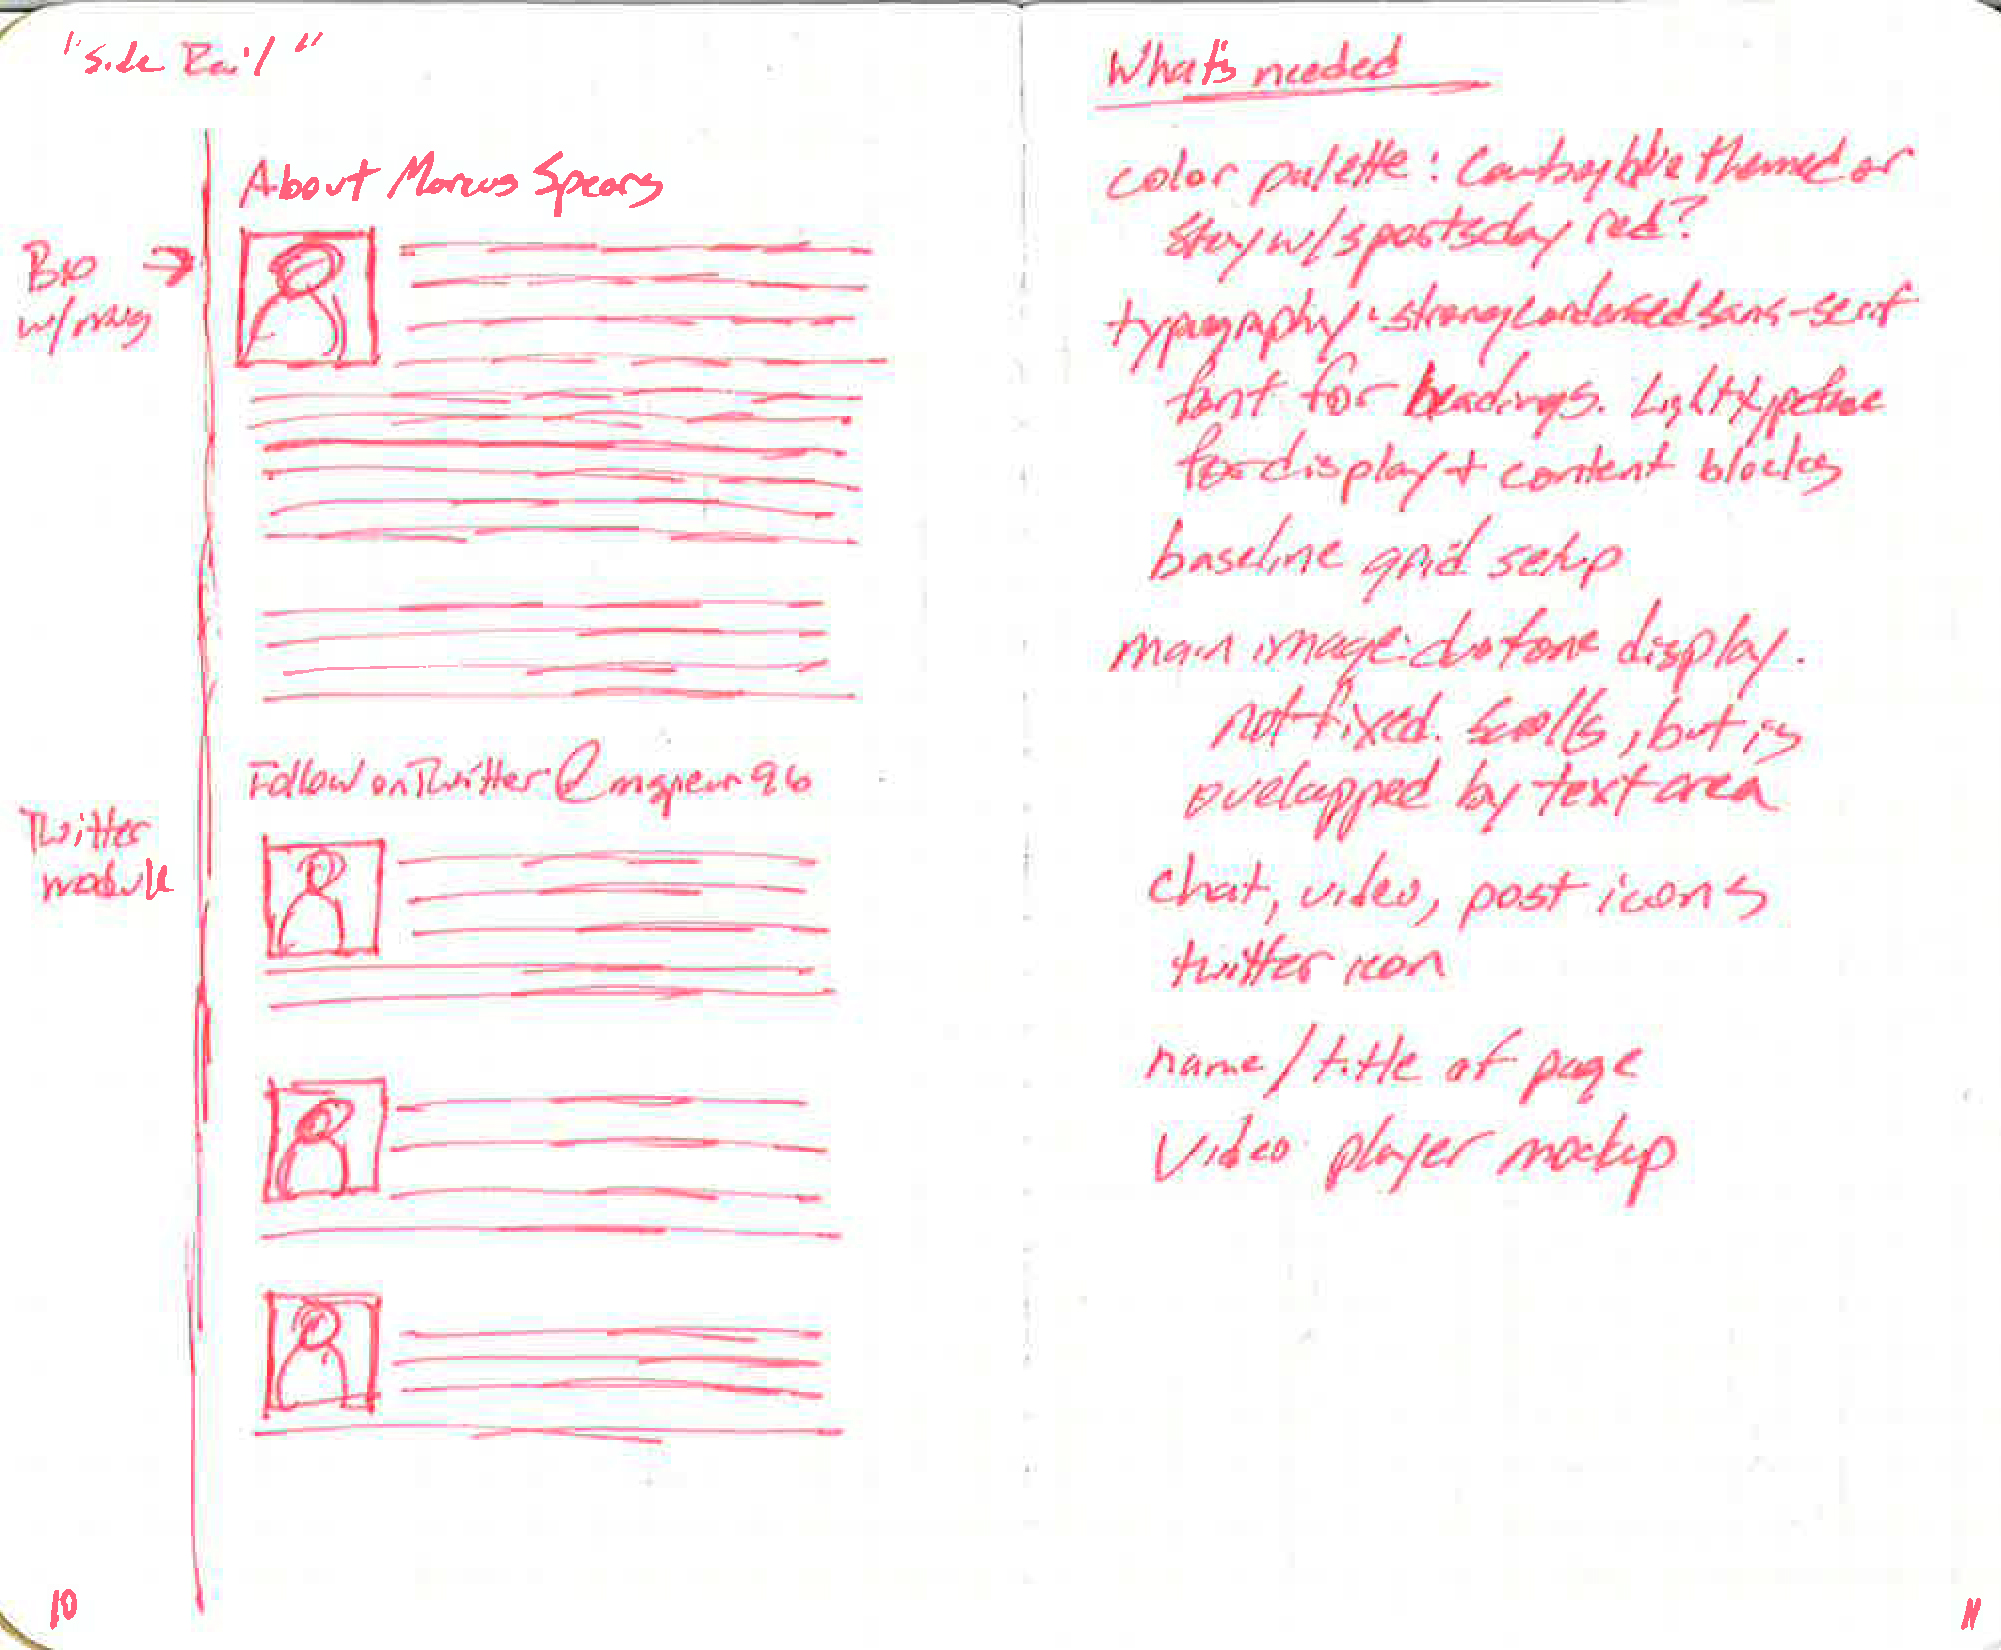 "Side Rail"
About Marcus Spears
Bio
w/ mug
Follow on Twitter @mspear96
Twitter
module
10
What's needed
color palette: Cowboy blue themed or
stay w/ sportsday red?
typography: strong condensed sans-serif
font for headings. Light typeface
for display + content blocks
baseline grid setup
main image: duotone display.
not fixed. Scrolls, but is
overlapped by text area
chat, video, post icons
twitter icon
name / title of page
Video player mockup
11